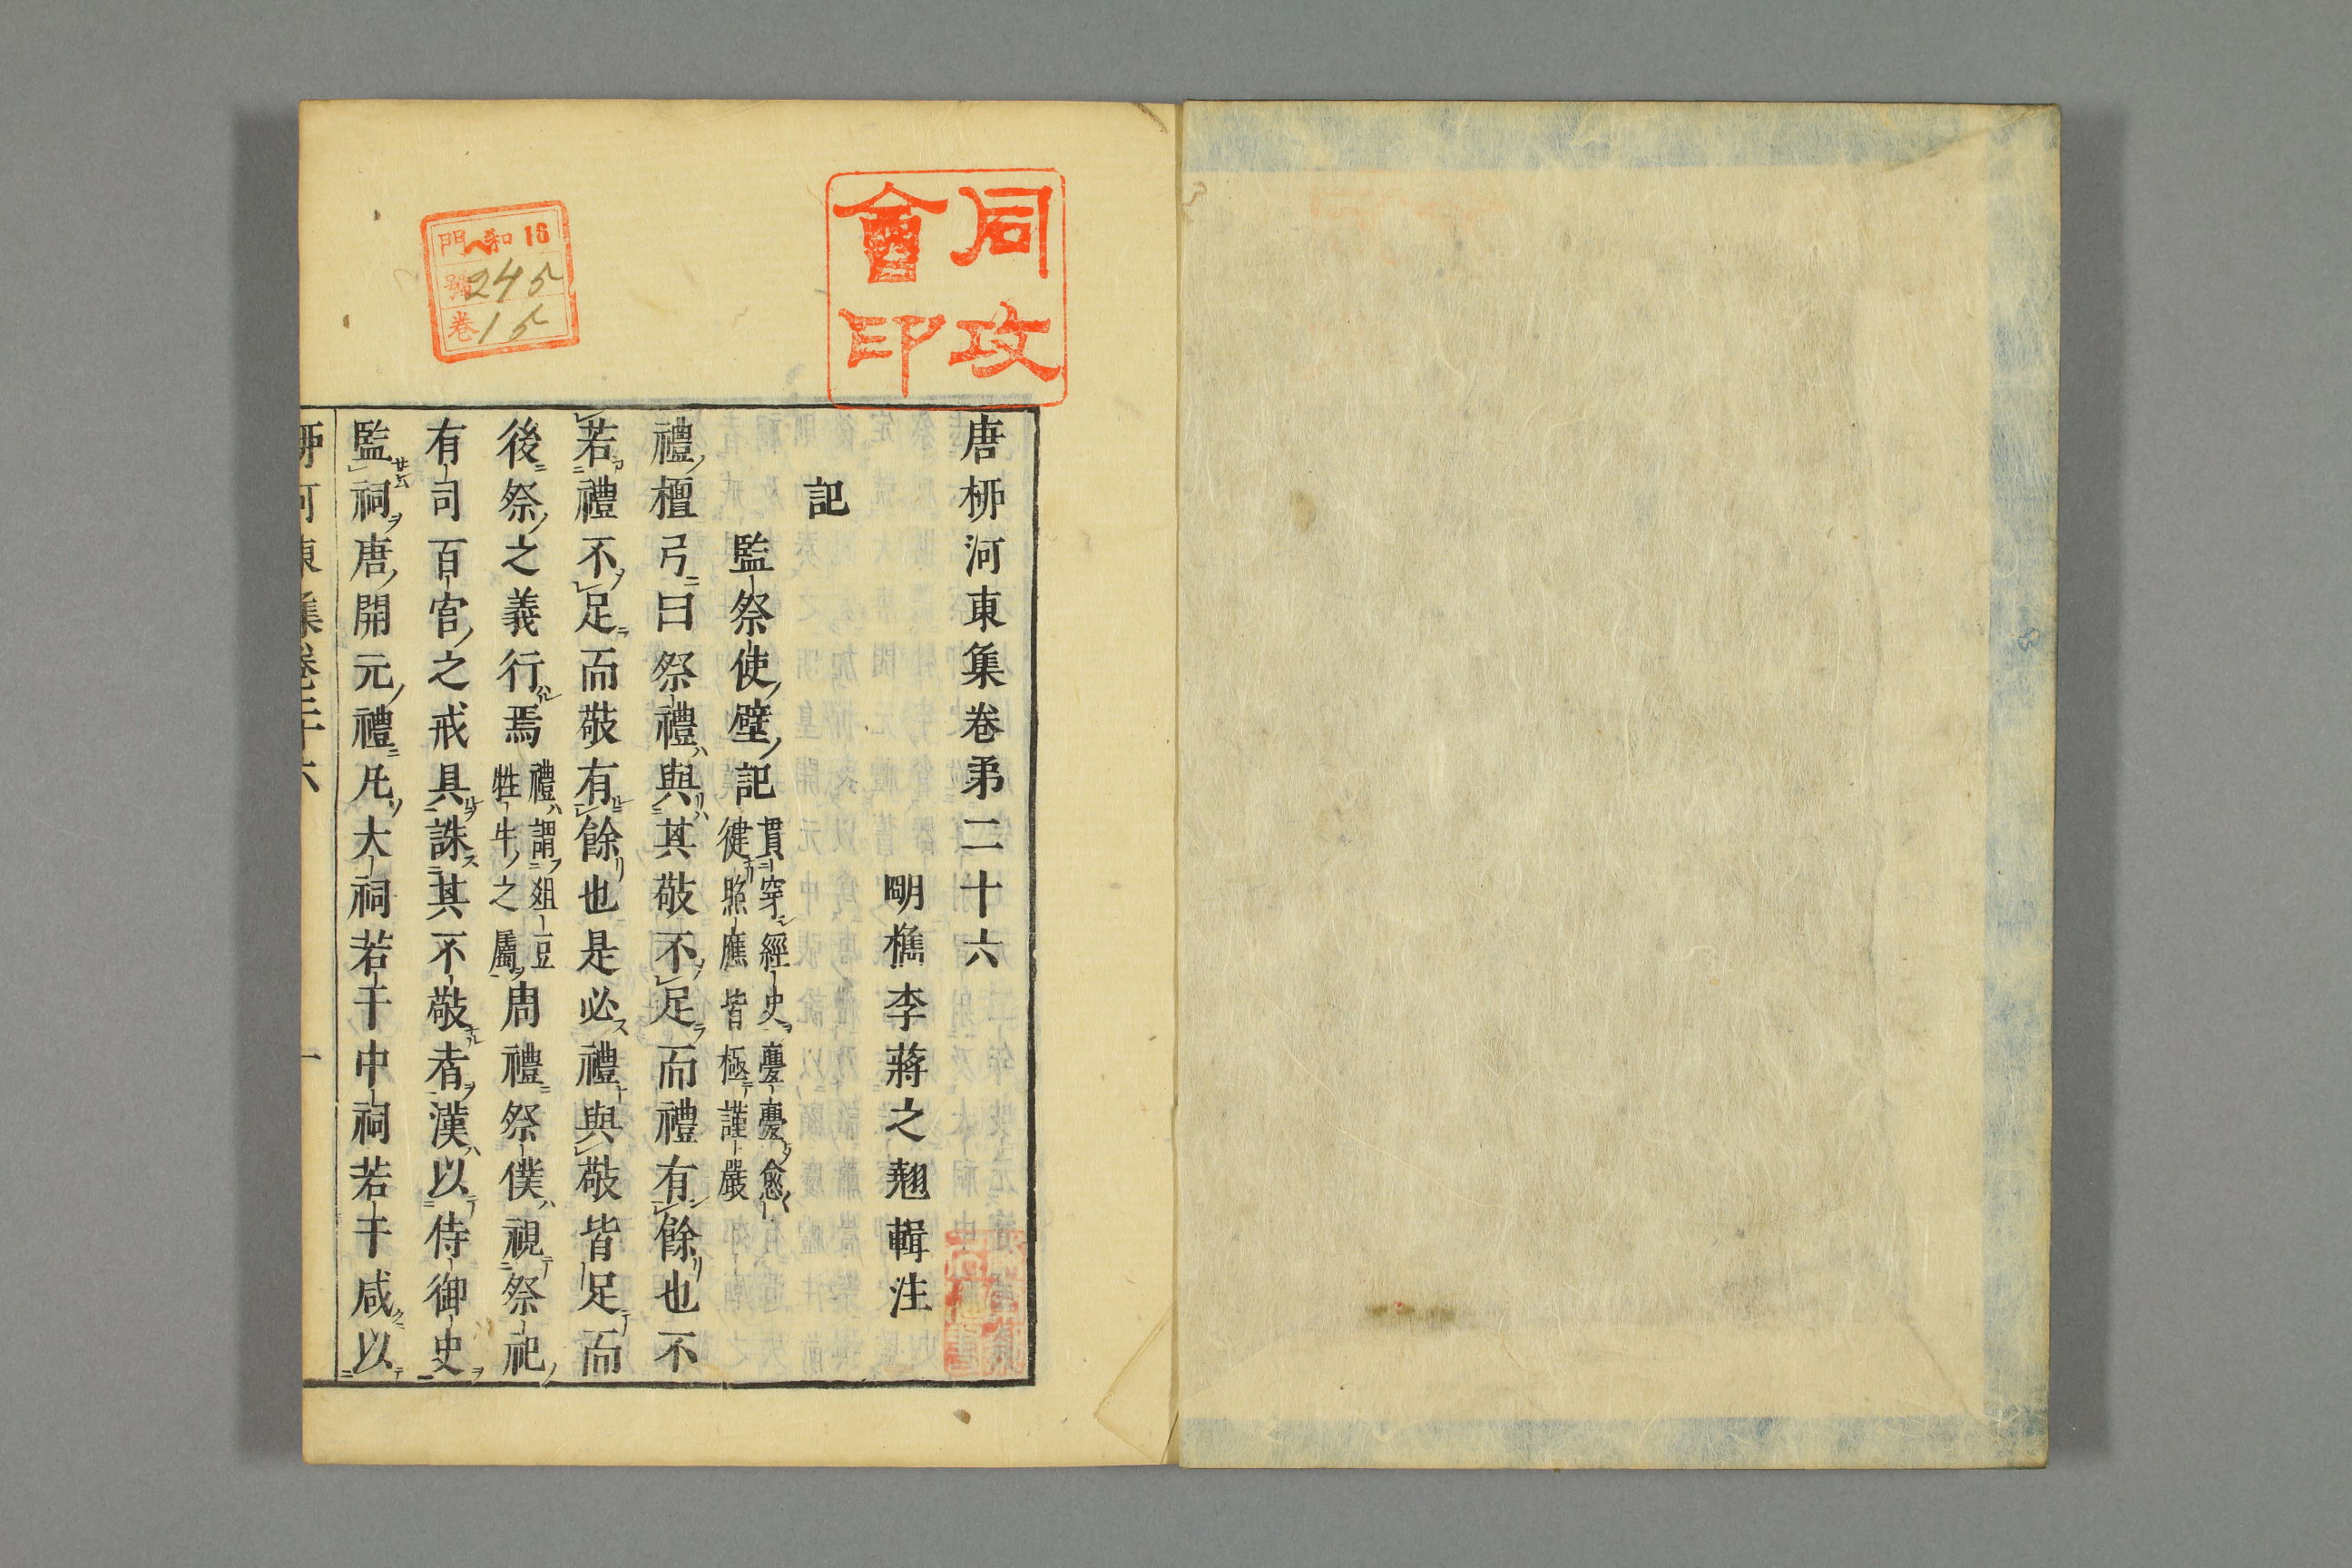 同攻
會印
和 16
門
號 245
卷 15
唐柳河東集卷第二十六
明檇李蔣之翹輯注
記
監祭使壁記
貫穿經史憂憂愈
徤照應皆極謹嚴
禮檀弓曰祭禮與其敬不足而禮有餘也不
若禮不足而敬有餘也是必禮與敬皆足而
後祭之義行焉
禮謂俎豆
牲牛之屬
周禮祭僕視祭祀
有司百官之戒具誅其不敬者漢以侍御史
監祠唐開元禮凡大祠若干中祠若干咸以
柳河東集卷二十六 一